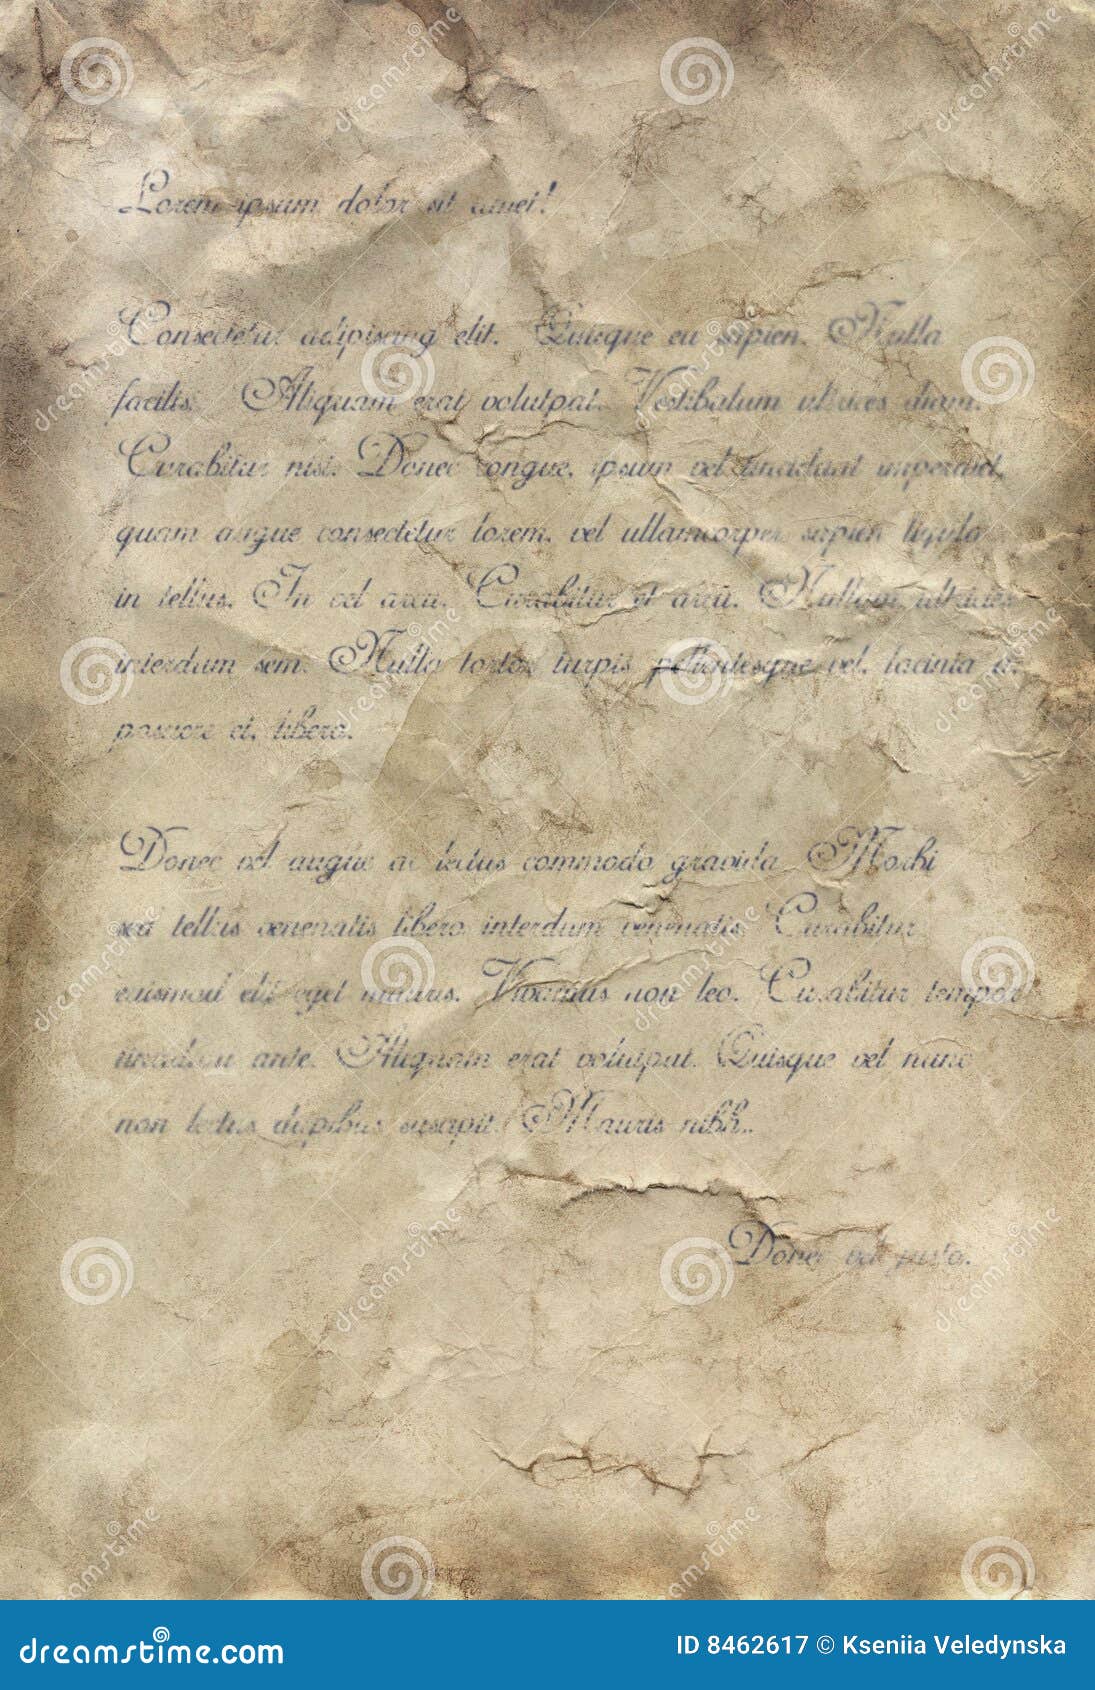 Lorem ipsum dolor sit amet!
Consectetur adipiscing elit. Quisque eu sapien. Nulla
facilis. Aliquam erat volutpat. Vestibulum ultrices diam.
Curabitur nisi. Donec congue, ipsum vel tincidunt imperdiet,
quam augue consectetur lorem, vel ullamcorper sapien ligula
in tellus. In vel arcu. Curabitur et arcu. Nullam ultricies
interdum sem. Nulla tortor turpis pellentesque vel, lacinia in
posuere et, libero.
Donec vel augue ac lectus commodo gravida. Morbi
sed tellus venenatis libero interdum venenatis. Curabitur
euismod elit eget mauris. Vivamus non leo. Curabitur tempor
tincidunt ante. Aliquam erat volutpat. Quisque vel nunc
non lectus dapibus suscipit. Mauris nibh..
Donec vel justo.
dreamstime.com
ID 8462617 © Kseniia Veledynska